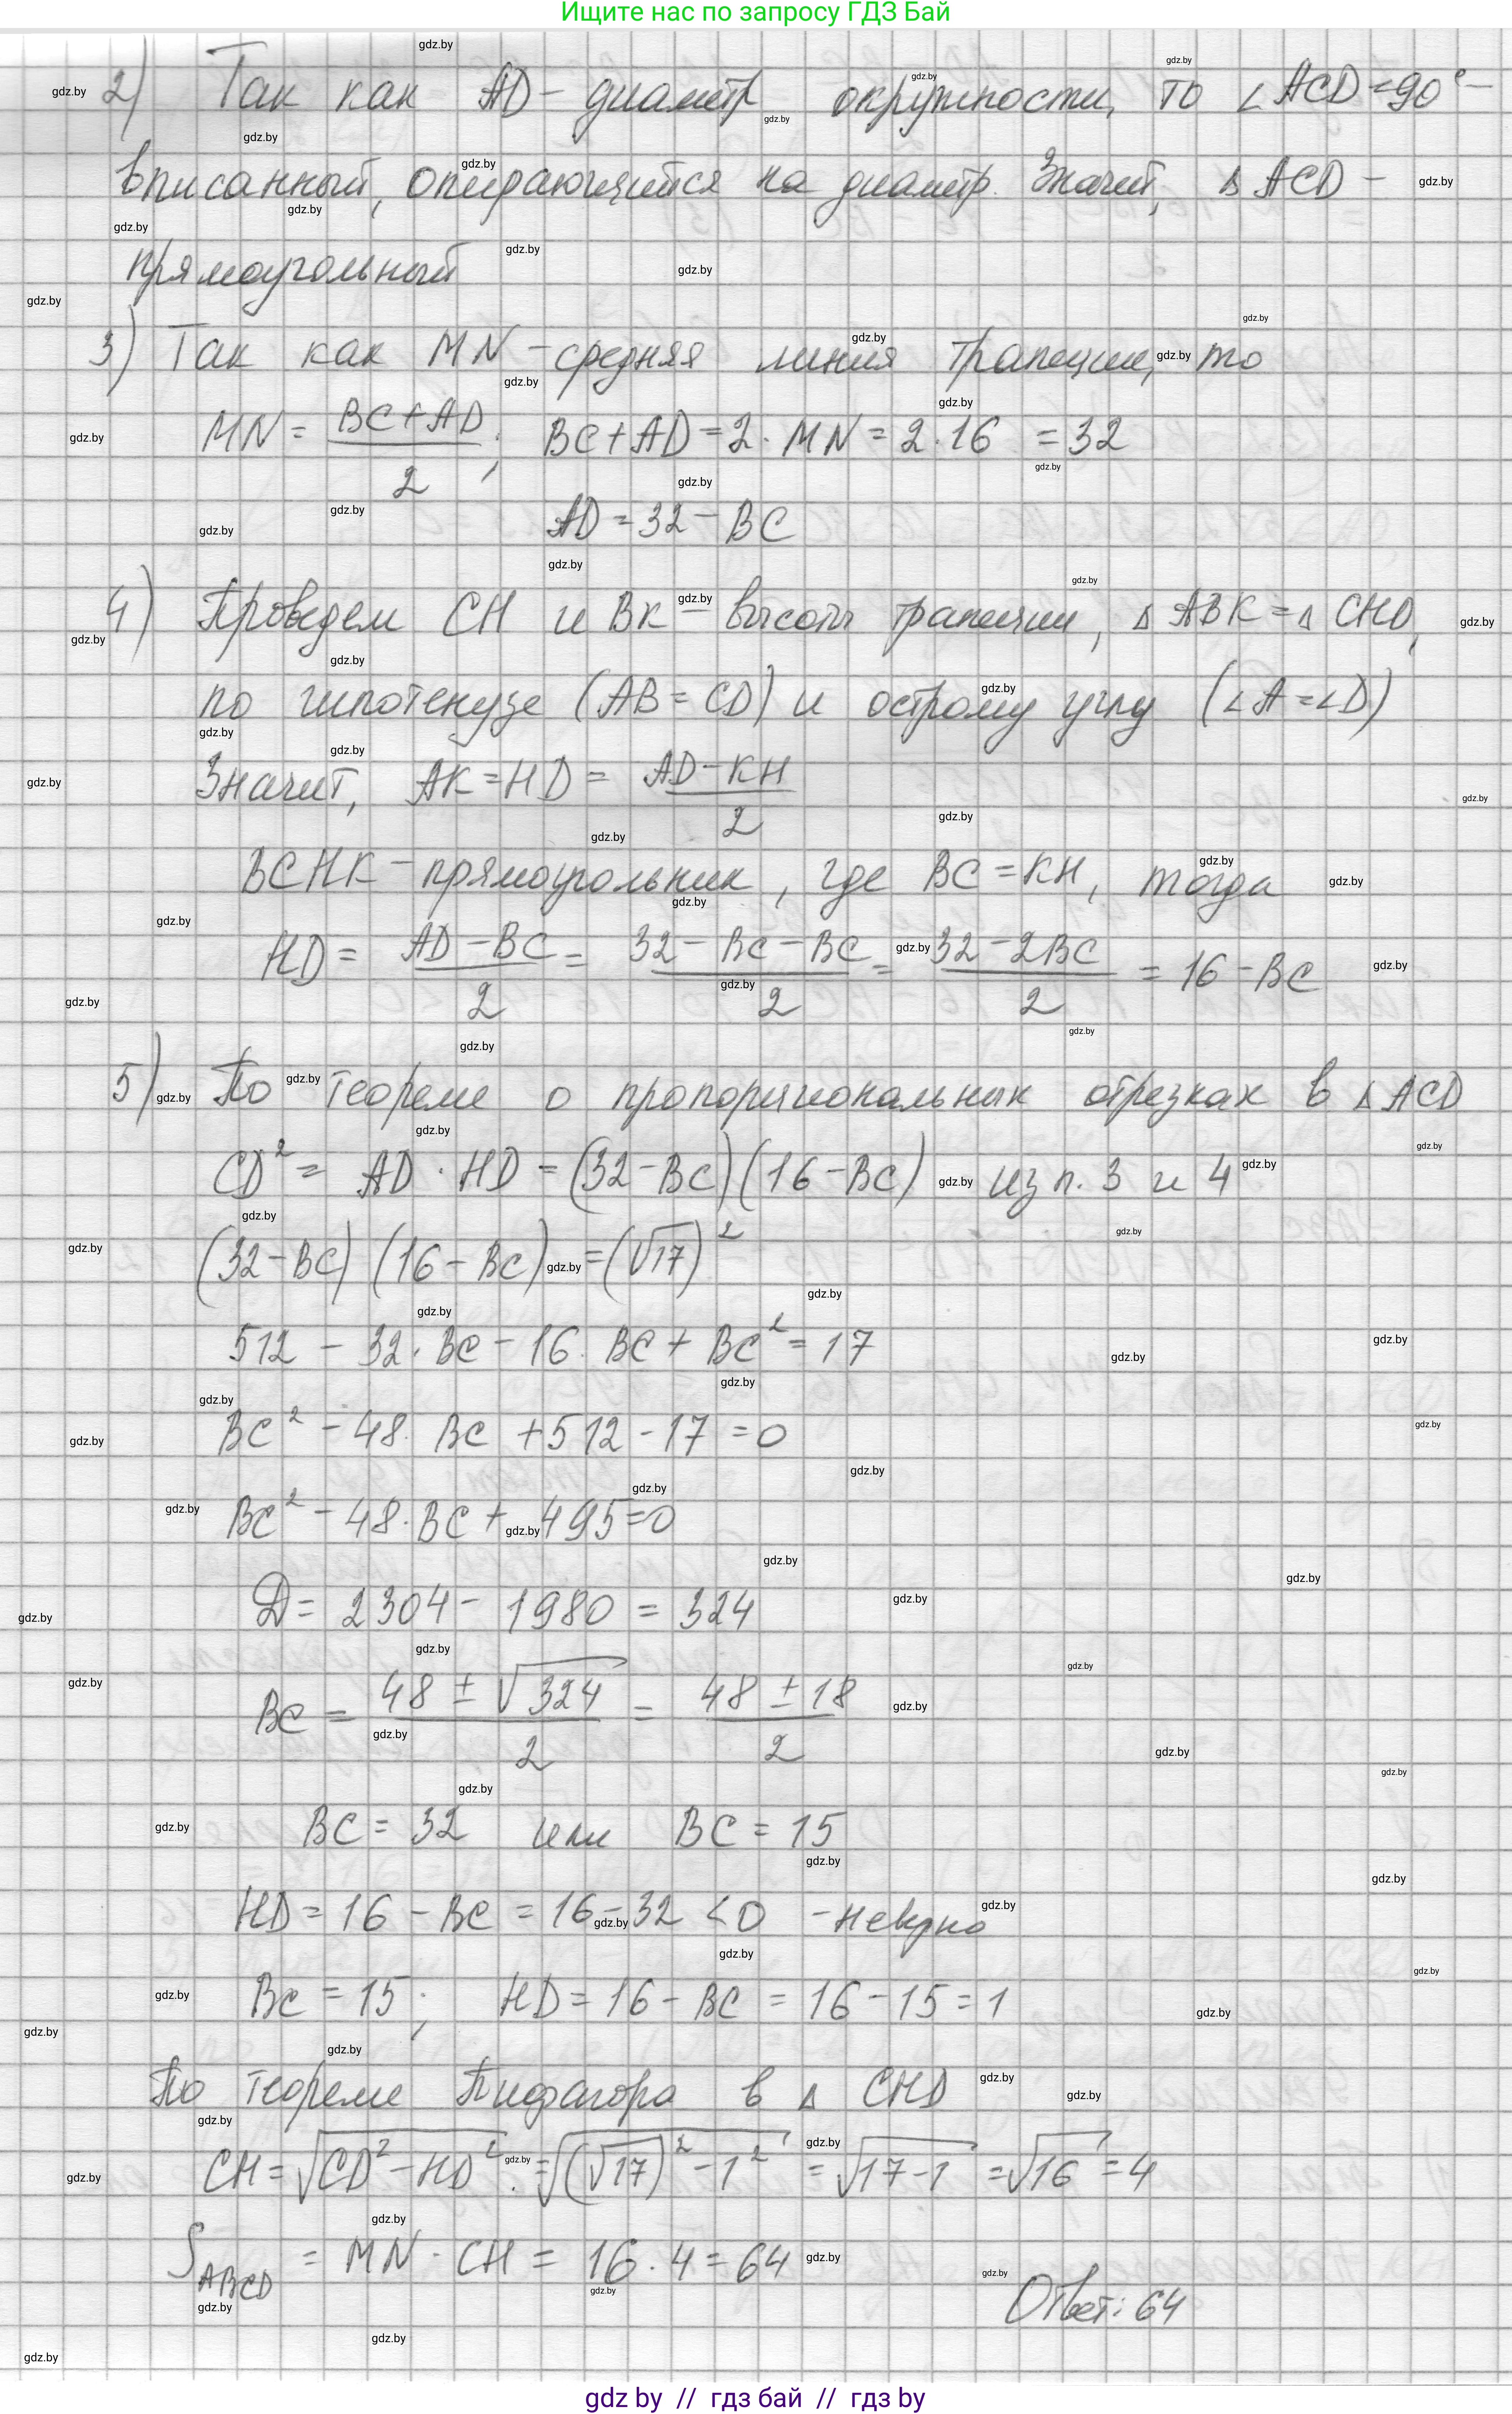 Ищите нас по запросу ГДЗ Бай
2) Так как AD - диаметр окружности, то ∠ACD = 90° -
вписанный, опирающийся на диаметр. Значит, △ACD -
прямоугольный
3) Так как MN - средняя линия трапеции, то
MN = (BC + AD)/2; BC + AD = 2 · MN = 2 · 16 = 32
AD = 32 - BC
4) Проведем CH и BK - высоты трапеции, △ABK = △CHD,
по гипотенузе (AB = CD) и острому углу (∠A = ∠D)
Значит, AK = HD = (AD - KH)/2
BCHK - прямоугольник, где BC = KH, тогда
HD = (AD - BC)/2 = (32 - BC - BC)/2 = (32 - 2BC)/2 = 16 - BC
5) По теореме о пропорциональных отрезках в △ACD
CD² = AD · HD = (32 - BC)(16 - BC) из п. 3 и 4
(32 - BC)(16 - BC) = (√17)²
512 - 32 · BC - 16 · BC + BC² = 17
BC² - 48 · BC + 512 - 17 = 0
BC² - 48 · BC + 495 = 0
D = 2304 - 1980 = 324
BC = (48 ± √324)/2 = (48 ± 18)/2
BC = 32 или BC = 15
HD = 16 - BC = 16 - 32 < 0 - неверно
BC = 15; HD = 16 - BC = 16 - 15 = 1
По теореме Пифагора в △ CHD
CH = √(CD² - HD²) = √((√17)² - 1²) = √(17 - 1) = √16 = 4
S_ABCD = MN · CH = 16 · 4 = 64
Ответ: 64
gdz by // гдз бай // гдз by